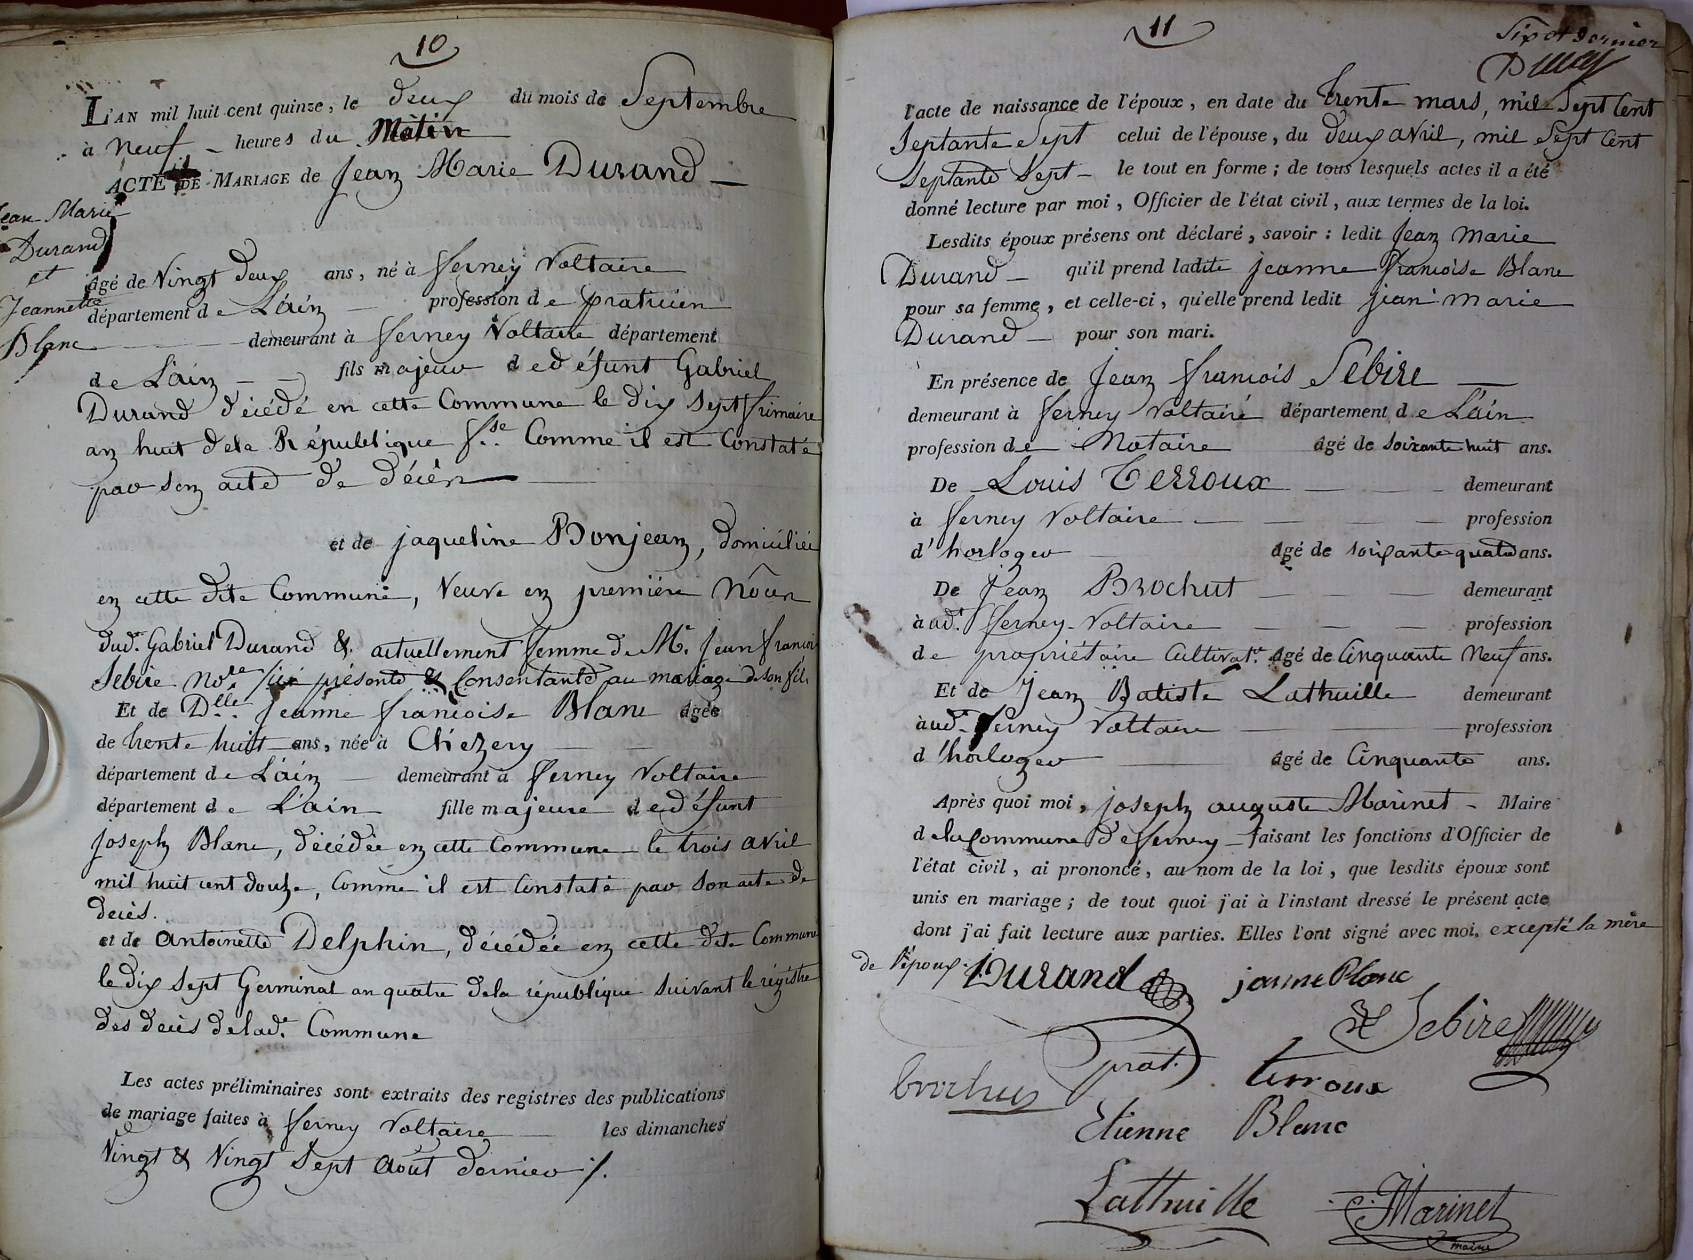 10
L'AN mil huit cent quinze, le deux du mois de Septembre
à neuf - heures du Matin
ACTE DE MARIAGE de Jean Marie Durand —
Jean Marie
Durand
et
Jeannette
Blanc
âgé de Vingt deux ans, né à ferney Voltaire
département de L'ain — profession de praticien
demeurant à ferney Voltaire département
de L'ain — fils majeur de défunt Gabriel
Durand décédé en cette Commune le dix sept frimaire
an huit dela République f.se Comme il est Constaté
par son acte de décès —
et de jaqueline Bonjean, domiciliée
en cette dite Commune, Veuve en première Nôces
dud.t Gabriel Durand & actuellement femme de M.r jean francois
Sebire No.re ici présente & Consentante au mariage de son fils
Et de D.lle Jeanne francoise Blanc âgée
de trente huit ans, née à Chezery
département de L'ain — demeurant à ferney Voltaire
département de L'ain fille majeure de défunt
joseph Blanc, décédée en cette Commune le trois avril
mil huit cent douze, Comme il est Constaté par son acte de
decès.
et de antoinette Delphin, décédée en cette dite Commune
le dix sept Germinal an quatre dela république suivant le régistre
des decès de lad.e Commune
Les actes préliminaires sont extraits des registres des publications
de mariage faites à ferney Voltaire — les dimanches
Vingt & Vingt Sept août dernier ./.
11
Six et dernier
l'acte de naissance de l'époux, en date du trente mars, mil Sept Cent
Septante Sept celui de l'épouse, du deux avril, mil Sept Cent
Septante Sept - le tout en forme ; de tous lesquels actes il a été
donné lecture par moi, Officier de l'état civil, aux termes de la loi.
Lesdits époux présens ont déclaré, savoir : ledit Jean Marie
Durand — qu'il prend ladite jeanne francoise Blanc
pour sa femme, et celle-ci, qu'elle prend ledit jean marie
Durand — pour son mari.
En présence de Jean francois Sebire —
demeurant à ferney Voltaire département de L'ain
profession de Notaire âgé de soixante huit ans.
De Louis Terroux — demeurant
à ferney Voltaire — profession
d'horloger âgé de soixante quatre ans.
De Jean Brochut — demeurant
à ud.t ferney-Voltaire — profession
de propriétaire Cultivat.r âgé de Cinquante Neuf ans.
Et de Jean Batiste Lathuille demeurant
à ud.t ferney Voltaire — profession
d'horloger — âgé de Cinquante ans.
Après quoi moi, joseph auguste Marinet - Maire
de la Commune de ferney — faisant les fonctions d'Officier de
l'état civil, ai prononcé, au nom de la loi, que lesdits époux sont
unis en mariage ; de tout quoi j'ai à l'instant dressé le présent acte
dont j'ai fait lecture aux parties. Elles l'ont signé avec moi, excepté la mère
de l'époux. J. Durand jeanne Blanc
prat. Sebire
brochus terroux
Etienne Blanc
Lathuille Marinet
maire